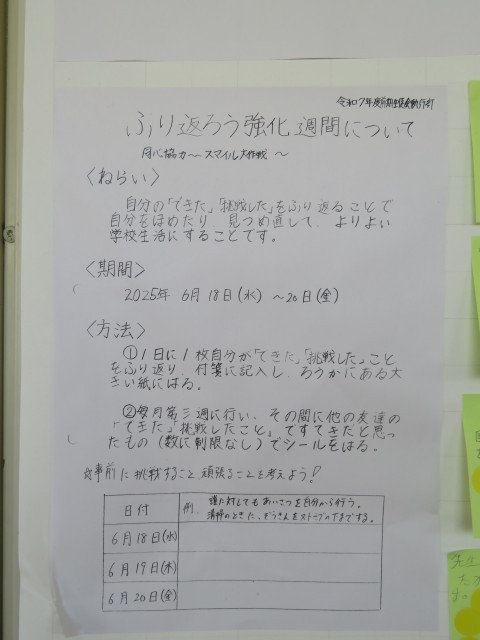 令和7年度前期児童会執行部
ふり返ろう強化週間について
同心協力〜スマイル大作戦〜
〈ねらい〉
自分の「できた」「挑戦した」をふり返ることで
自分をほめたり 見つめ直して、よりよい
学校生活にすることです。
〈期間〉
2025年 6月18日(水) 〜20日(金)
〈方法〉
①1日に1枚自分が「できた」「挑戦した」こと
をふり返り、付箋に記入し、ろうかにある大
きい紙にはる。
②毎月第三週に行い、その間に他の友達の
「できた」「挑戦したこと」ですてきだと思っ
たもの(数に制限なし)でシールをはる。
☆事前に挑戦すること、頑張ることを考えよう!
日付
例. 誰に対してもあいさつを自分から行う。
清掃のときに、ぞうきんをストーブの下までする。
6月18日(水)
6月19日(木)
6月20日(金)
先生
す。